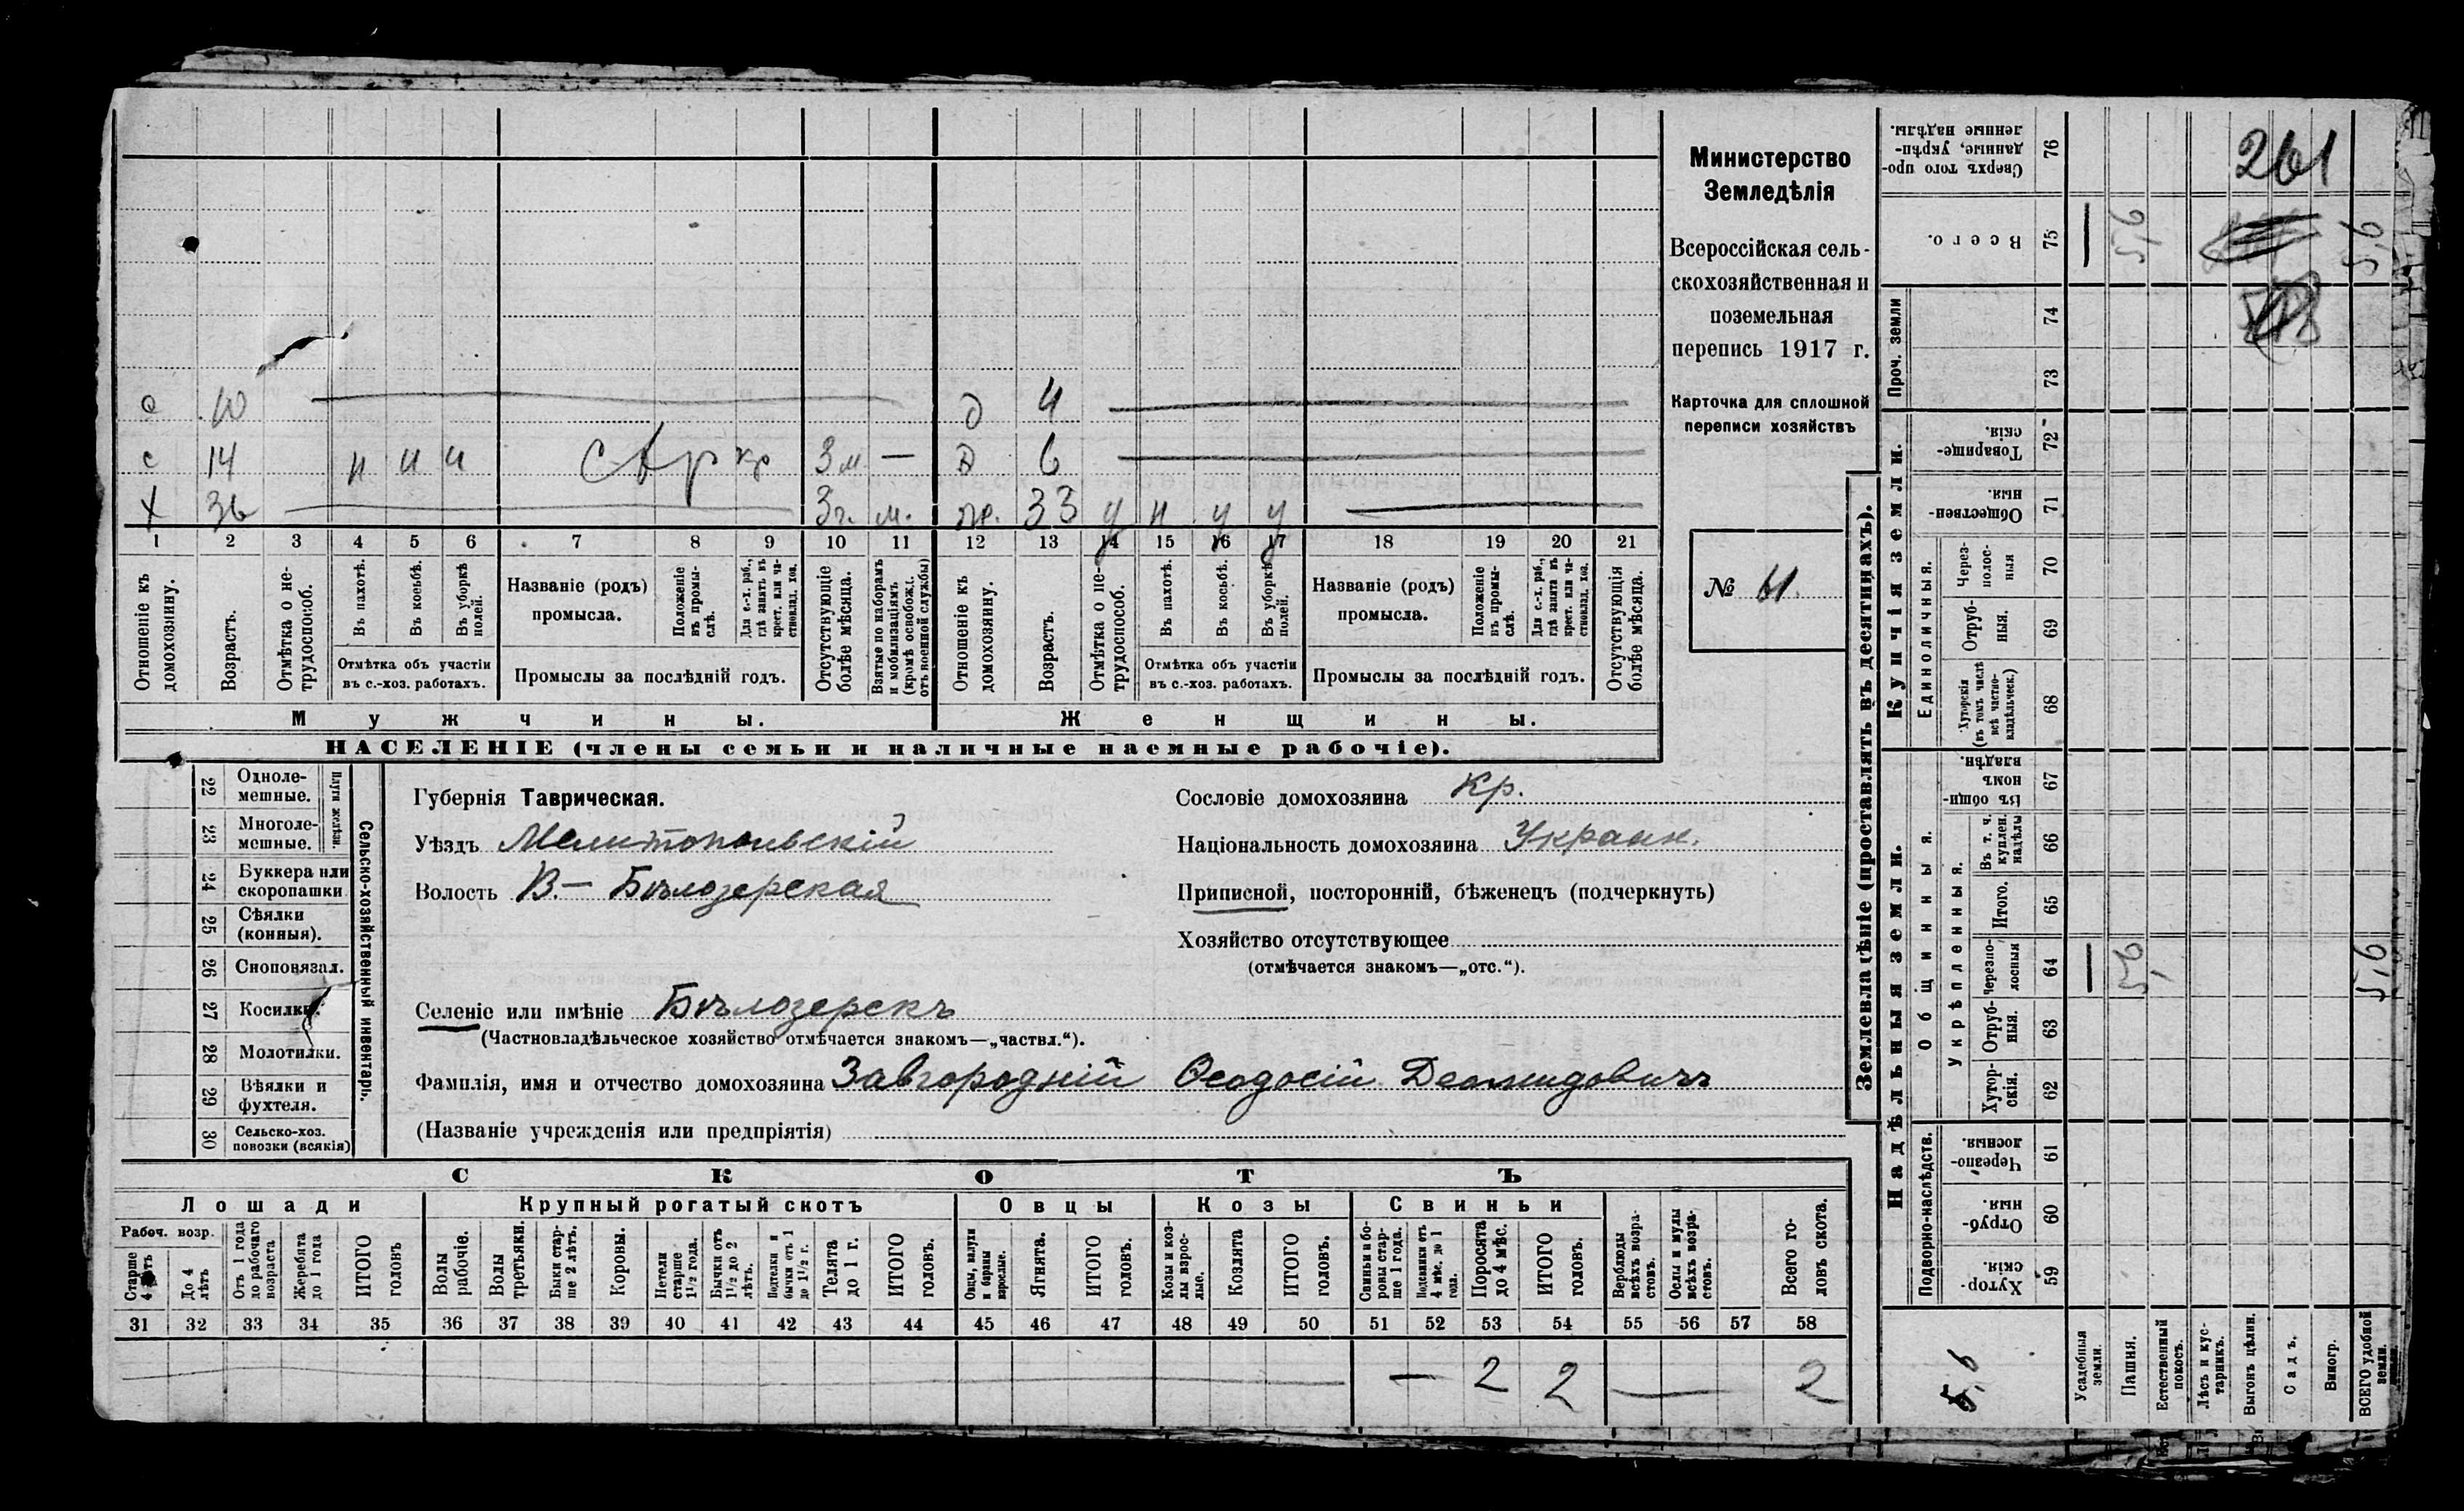 Министерство
Земледѣлія
Всероссійская сель-
скохозяйственная и
поземельная
перепись 1917 г.
Карточка для сплошной
переписи хозяйствъ
№ 61.
10 4
с 14 н и и 3 м — 6
х 36 3 г. м. 33 у н у у
1 2 3 4 5 6 7 8 9 10 11 12 13 14 15 16 17 18 19 20 21
Отношеніе къ домохозяину.
Возрастъ.
Отмѣтка о не-трудоспособ.
Въ пахотѣ.
Въ косьбѣ.
Въ уборкѣ полей.
Отмѣтка объ участіи
въ с.-хоз. работахъ.
Названіе (родъ)
промысла.
Положеніе въ промы-слѣ.
Для с.-х. раб., гдѣ занятъ въ крест. или ча-стновлад. хоз.
Промыслы за послѣдній годъ.
Отсутствующіе болѣе мѣсяца.
Взятые по наборамъ и мобилизаціямъ (кромѣ освобожд. отъ военной службы)
Отношеніе къ домохозяину.
Возрастъ.
Отмѣтка о не-трудоспособ.
Въ пахотѣ.
Въ косьбѣ.
Въ уборкѣ полей.
Отмѣтка объ участіи
въ с.-хоз. работахъ.
Названіе (родъ)
промысла.
Положеніе въ промы-слѣ.
Для с.-х. раб., гдѣ занята въ крест. или ча-стновлад. хоз.
Промыслы за послѣдній годъ.
Отсутствующія болѣе мѣсяца.
Мужчины. Женщины.
НАСЕЛЕНІЕ (члены семьи и наличные наемные рабочіе).
Сельско-хозяйственный инвентарь.
Плуги желѣзн.
22 Одноле-мешные.
23 Многоле-мешные.
24 Буккера или скоропашки
25 Сѣялки (конныя).
26 Сноповязал.
27 Косилки.
28 Молотилки.
29 Вѣялки и фухтеля.
30 Сельско-хоз. повозки (всякія)
Губернія Таврическая.
Уѣздъ Мелитопольскій
Волость В.- Бѣлозерская
Сословіе домохозяина Кр.
Національность домохозяина Украин.
Приписной, посторонній, бѣженецъ (подчеркнуть)
Хозяйство отсутствующее
(отмѣчается знакомъ—„отс.“).
Селеніе или имѣніе Бѣлозерскъ
(Частновладѣльческое хозяйство отмѣчается знакомъ—„частвл.“).
Фамилія, имя и отчество домохозяина Завгородній Ѳеодосій Деомидовичъ
(Названіе учрежденія или предпріятія)
СКОТЪ
Лошади Крупный рогатый скотъ Овцы Козы Свиньи
Рабоч. возр.
Старше 4 лѣтъ
До 4 лѣтъ
Отъ 1 года до рабочаго возраста
Жеребята до 1 года
ИТОГО головъ
Волы рабочіе.
Волы третьяки.
Быки стар-ше 2 лѣтъ.
Коровы.
Нетели старше 1½ года.
Бычки отъ 1½ до 2 лѣтъ.
Подтелки и бычки отъ 1 до 1½ г.
Телята до 1 г.
ИТОГО головъ.
Овцы, валухи и бараны взрослые.
Ягнята.
ИТОГО головъ.
Козы и коз-лы взрос-лые.
Козлята
ИТОГО головъ.
Свиньи и бо-ровы стар-ше 1 года.
Подсвинки отъ 4 мѣс. до 1 года.
Поросята до 4 мѣс.
ИТОГО головъ.
Верблюды всѣхъ возра-стовъ.
Ослы и мулы всѣхъ возра-стовъ.
Всего го-ловъ скота.
31 32 33 34 35 36 37 38 39 40 41 42 43 44 45 46 47 48 49 50 51 52 53 54 55 56 57 58
— 2 2 — 2
Землевладѣніе (проставлять въ десятинахъ).
Надѣльныя земли.
Купчія земли.
Проч. земли
Подворно-наслѣдств.
Общинныя.
Укрѣпленныя.
Единоличныя.
76 Сверхъ того про-данные, укрѣп-ленные надѣлы.
75 Всего.
74
73
72 Товарище-скія.
71 Обществен-ныя.
70 Через-полос-ныя
69 Отруб-ныя.
68 Хуторскія (въ томъ числѣ всѣ частно-владѣльческ.)
67 Въ общин-номъ владѣн.
66 Въ т. ч. куплен. надѣлы
65 Итого.
64 Черезпо-лосныя
63 Отруб-ныя.
62 Хутор-скія.
61 Черезпо-лосныя.
60 Отруб-ныя.
59 Хутор-скія.
Усадебныя земли.
Пашня.
Естественный покосъ.
Лѣсъ и кус-тарникъ.
Выгонъ цѣлин.
Садъ.
Виногр.
ВСЕГО удобной земли.
261